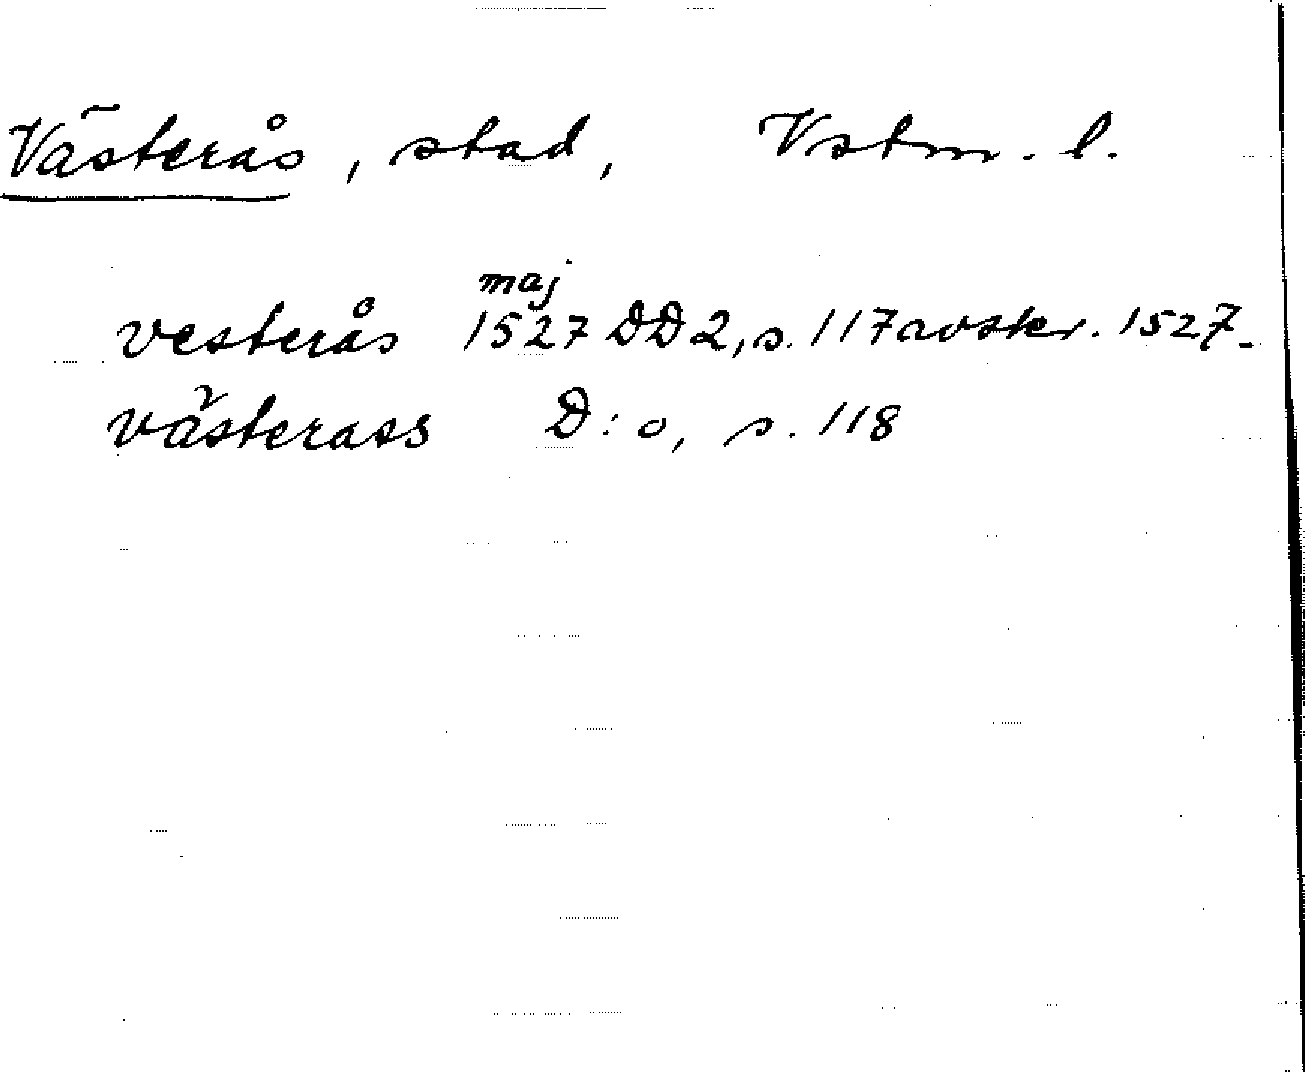 Västerås, stad, Vstm. l.
maj
vesterås 1527 DD2, s. 117 avskr. 1527.
västerass D:o, s. 118